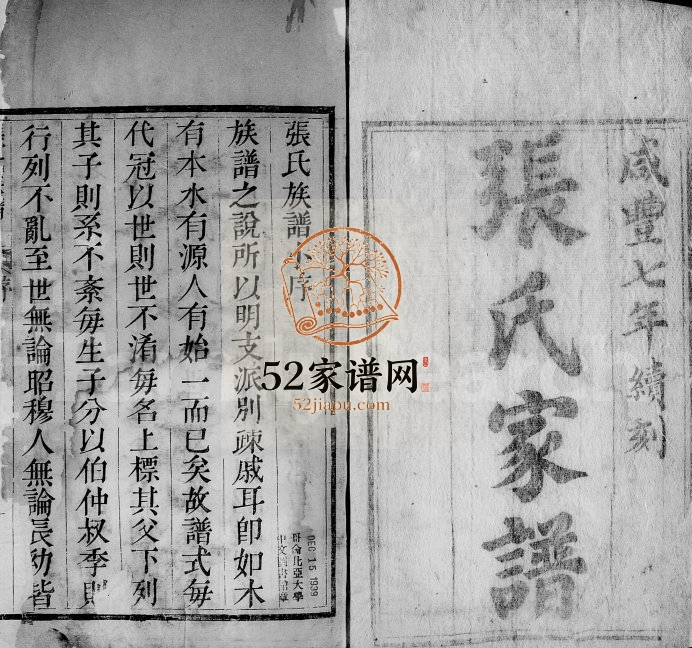 咸豐七年續刻
張氏家譜
張氏族譜小序
族譜之說所以明支派別疎戚耳卽如木
有本水有源人有始一而已矣故譜式每
代冠以世則世不淆每名上標其父下列
其子則系不紊每生子分以伯仲叔季則
行列不亂至世無論昭穆人無論長幼皆
52家谱网
52jiapu.com
DEC 15 1939
哥倫比亞大學
中文圖書館章